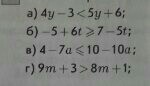 а) 4y − 3 < 5y + 6;
б) −5 + 6t ⩾ 7 − 5t;
в) 4 − 7a ⩽ 10 − 10a;
г) 9m + 3 > 8m + 1;